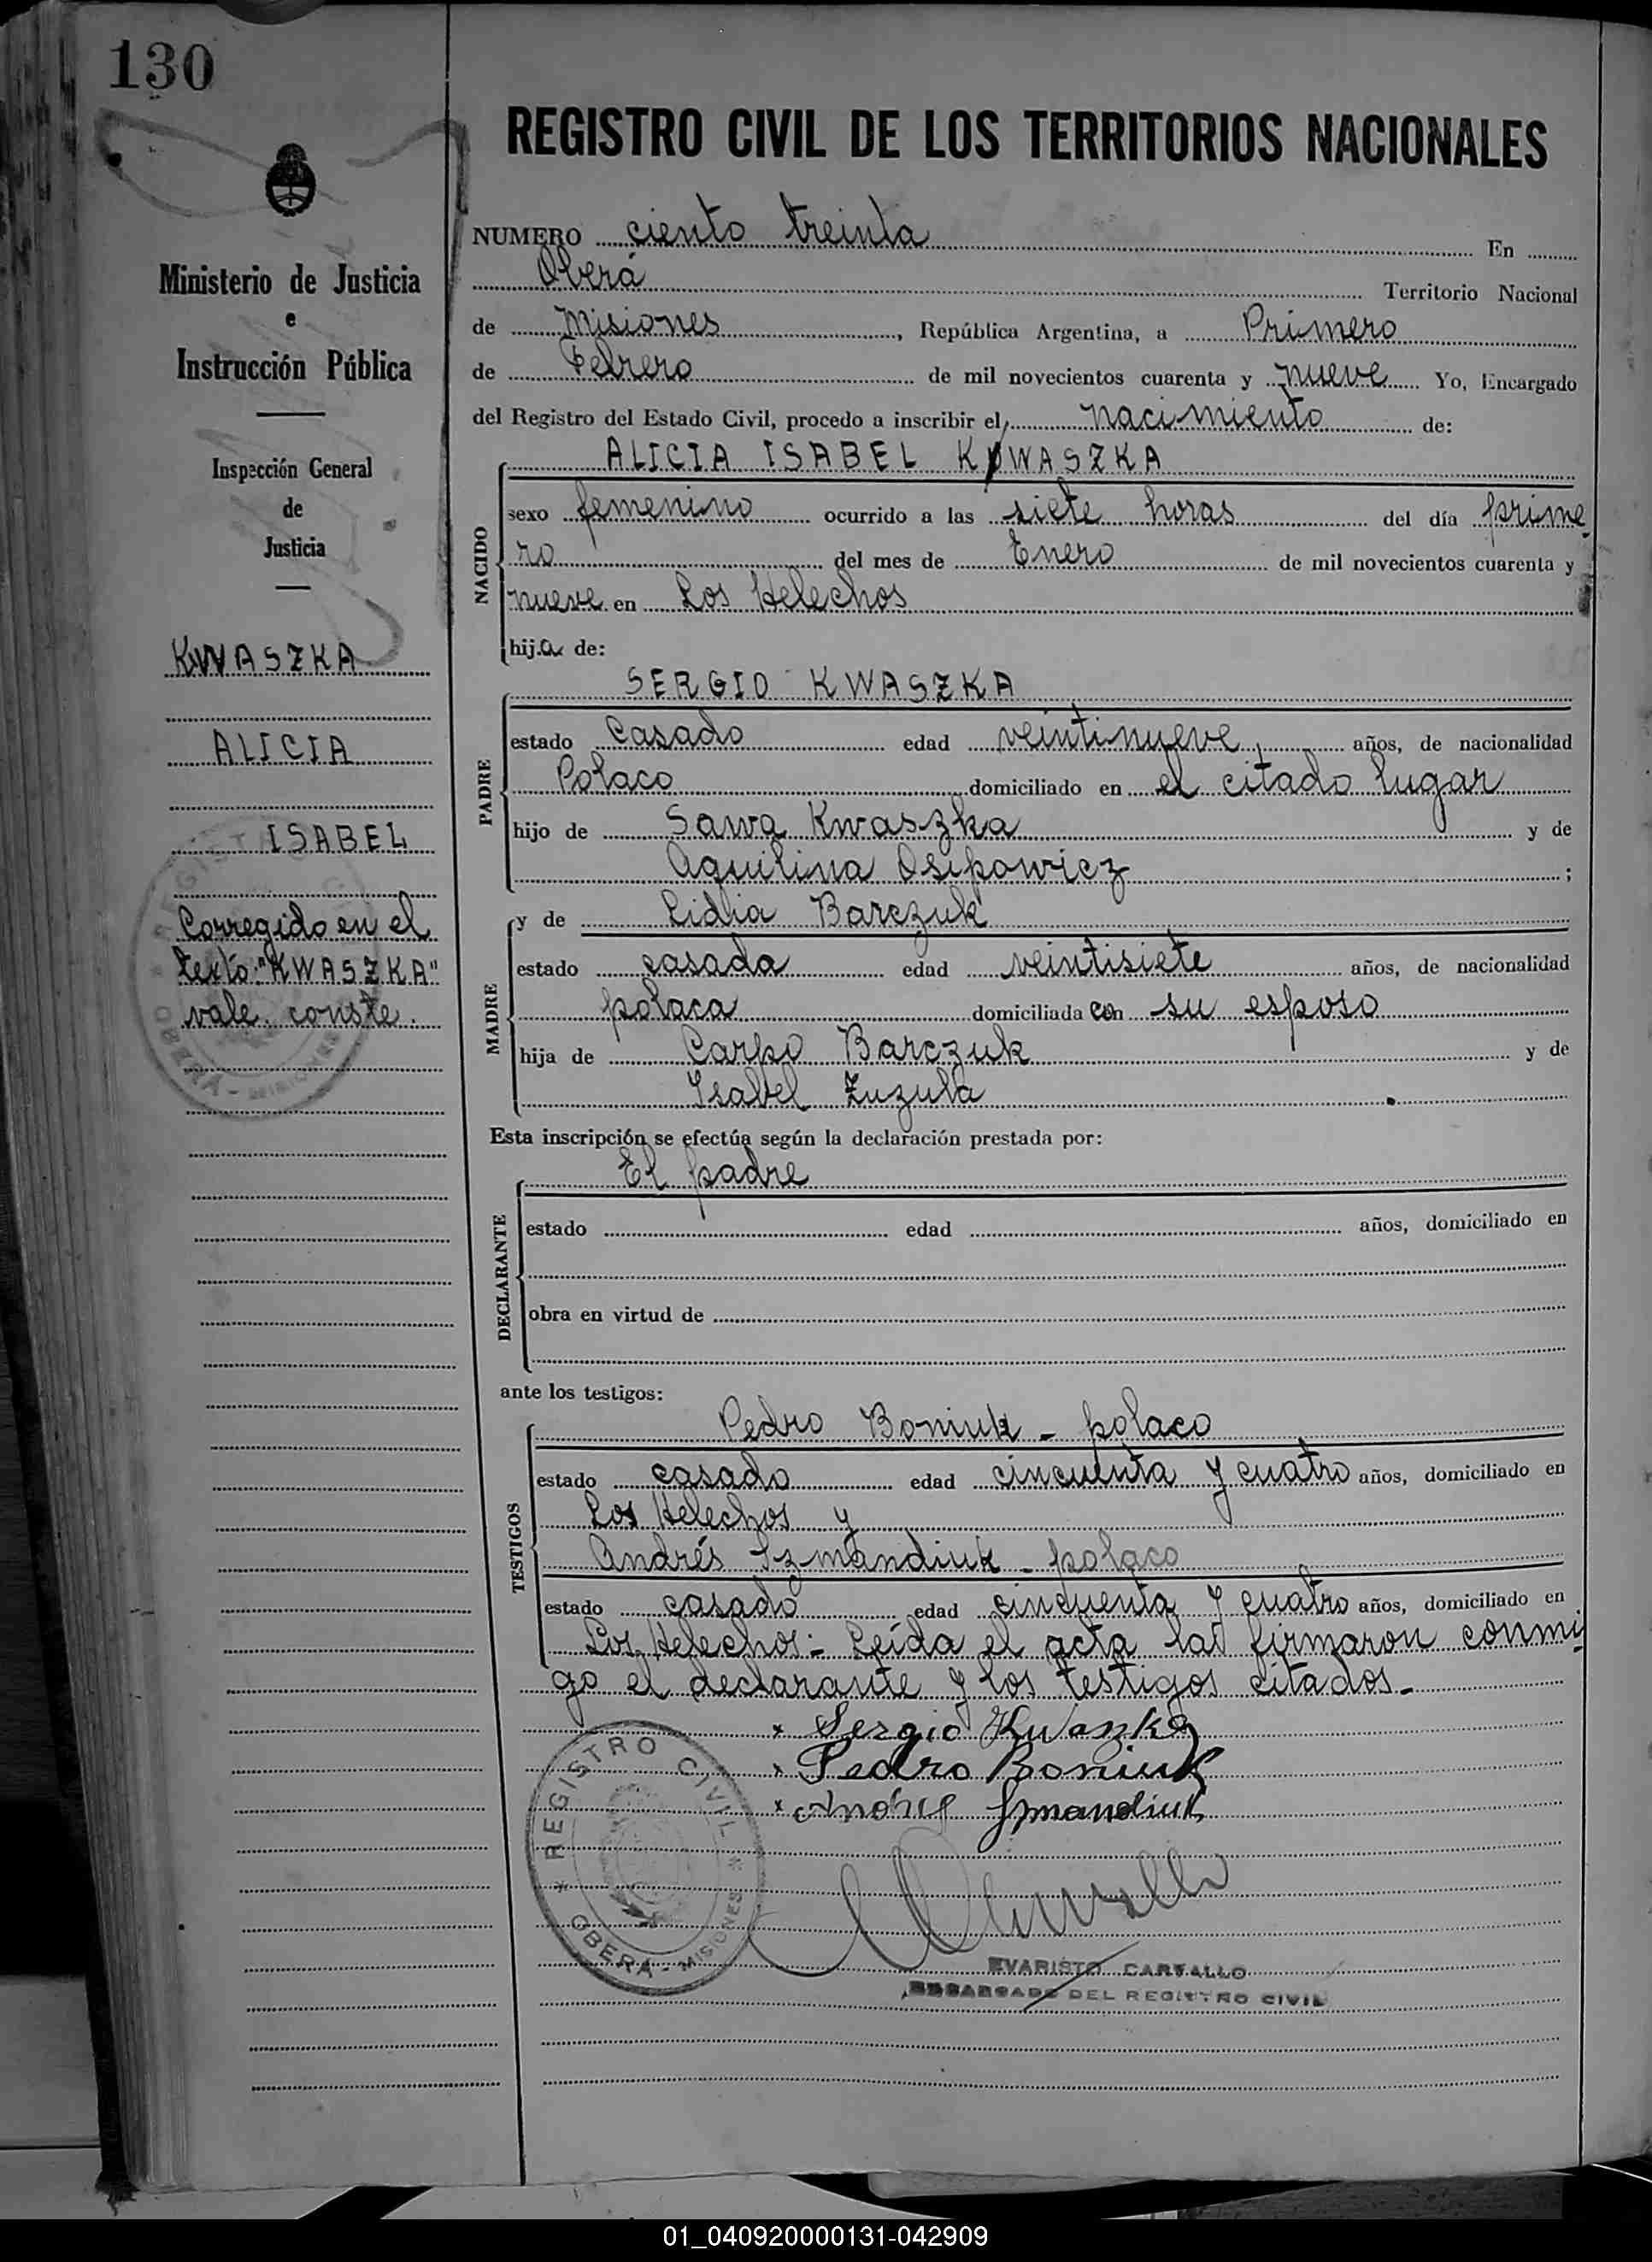 130
REGISTRO CIVIL DE LOS TERRITORIOS NACIONALES
Ministerio de Justicia
e
Instrucción Pública
Inspección General
de
Justicia
KWASZKA
ALICIA
ISABEL
Corregido en el
texto: "KWASZKA"
vale. conste.
NUMERO ciento treinta En
Oberá Territorio Nacional
de Misiones, República Argentina, a Primero
de Febrero de mil novecientos cuarenta y nueve Yo, Encargado
del Registro del Estado Civil, procedo a inscribir el, nacimiento de:
NACIDO
ALICIA ISABEL KWASZKA
sexo femenino ocurrido a las siete horas del día prime
ro del mes de Enero de mil novecientos cuarenta y
nueve en Los Helechos
hija de:
PADRE
SERGIO KWASZKA
estado Casado edad veintinueve años, de nacionalidad
Polaco domiciliado en el citado lugar
hijo de Sawa Kwaszka y de
Aquilina Osipowicz;
MADRE
y de Lidia Barczuk
estado casada edad veintisiete años, de nacionalidad
polaca domiciliada con su esposo
hija de Carpo Barczuk y de
Isabel Zuzula.
Esta inscripción se efectúa según la declaración prestada por:
DECLARANTE
El padre
estado edad años, domiciliado en
obra en virtud de
ante los testigos:
TESTIGOS
Pedro Boniuk - polaco
estado casado edad cincuenta y cuatro años, domiciliado en
Los Helechos y
Andrés Szmandiuk - polaco
estado casado edad cincuenta y cuatro años, domiciliado en
Los Helechos:- Leída el acta la firmaron conmi
go el declarante y los testigos citados.-
x Sergio Kwaszka
x Pedro Boniuk
x Andres Szmandiuk
* REGISTRO CIVIL * OBERÁ - MISIONES
EVARISTO CARVALLO
ENCARGADO DEL REGISTRO CIVIL
01_040920000131-042909